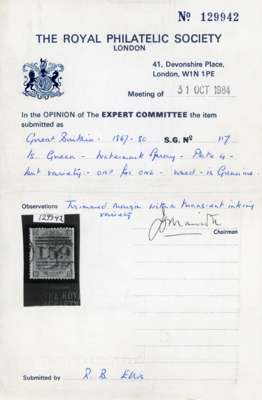 Nº 129942
THE ROYAL PHILATELIC SOCIETY
LONDON
41, Devonshire Place,
London, W1N 1PE
Meeting of 31 OCT 1984
In the OPINION of The EXPERT COMMITTEE the item
submitted as
Great Britain - 1867-80 S.G. Nº 117
1s. Green - Watermark Spray - Plate 4
but variety - one for one - used - is Genuine.
Observations Trimmed margin with a transient inking
variety
129942
Chairman
Submitted by